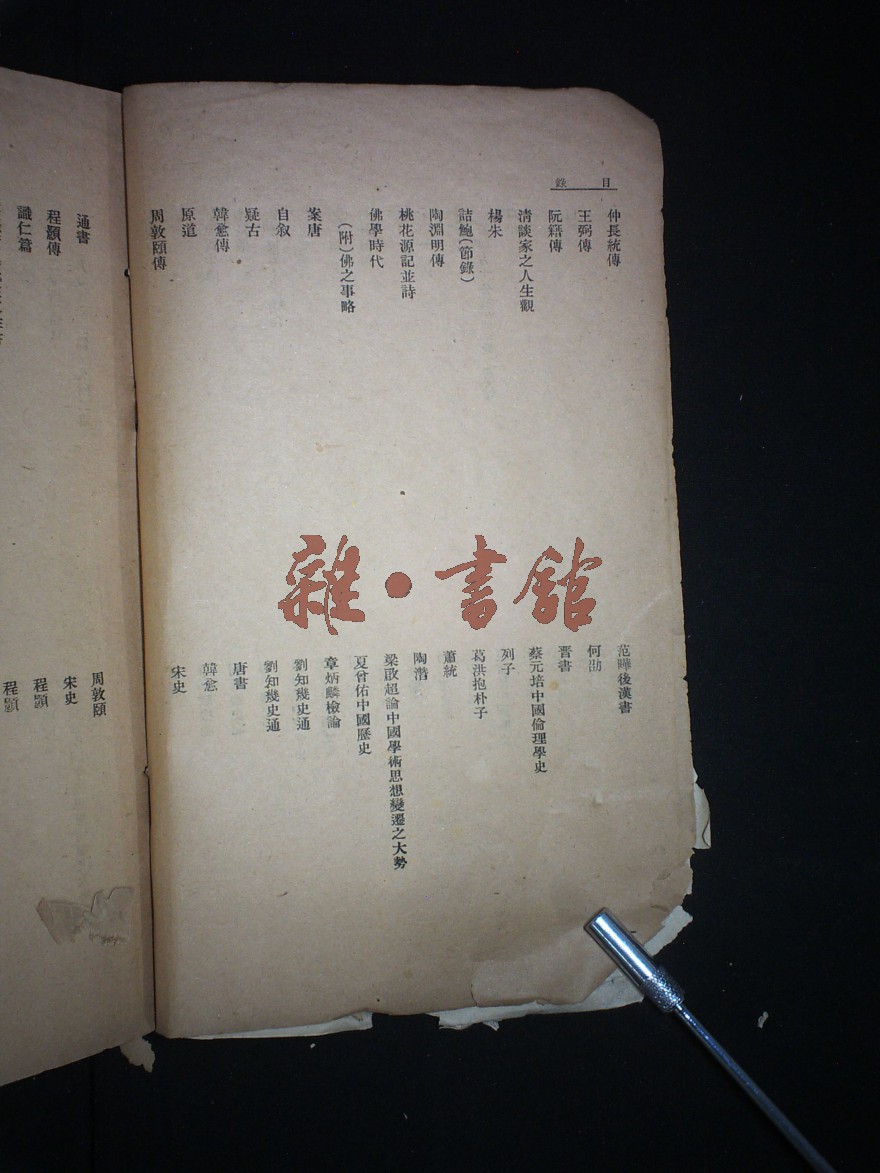 目錄
仲長統傳
范曄後漢書
王弼傳
何劭
阮籍傳
晋書
清談家之人生觀
蔡元培中國倫理學史
楊朱
列子
詰鮑(節錄)
葛洪抱朴子
陶淵明傳
蕭統
桃花源記並詩
陶潛
佛學時代
梁啟超論中國學術思想變遷之大勢
(附)佛之事略
夏曾佑中國歷史
案唐
章炳麟檢論
自叙
劉知幾史通
疑古
劉知幾史通
韓愈傳
唐書
原道
韓愈
周敦頤傳
宋史
通書
周敦頤
程顥傳
宋史
識仁篇
程顥
程顥
雜·書館